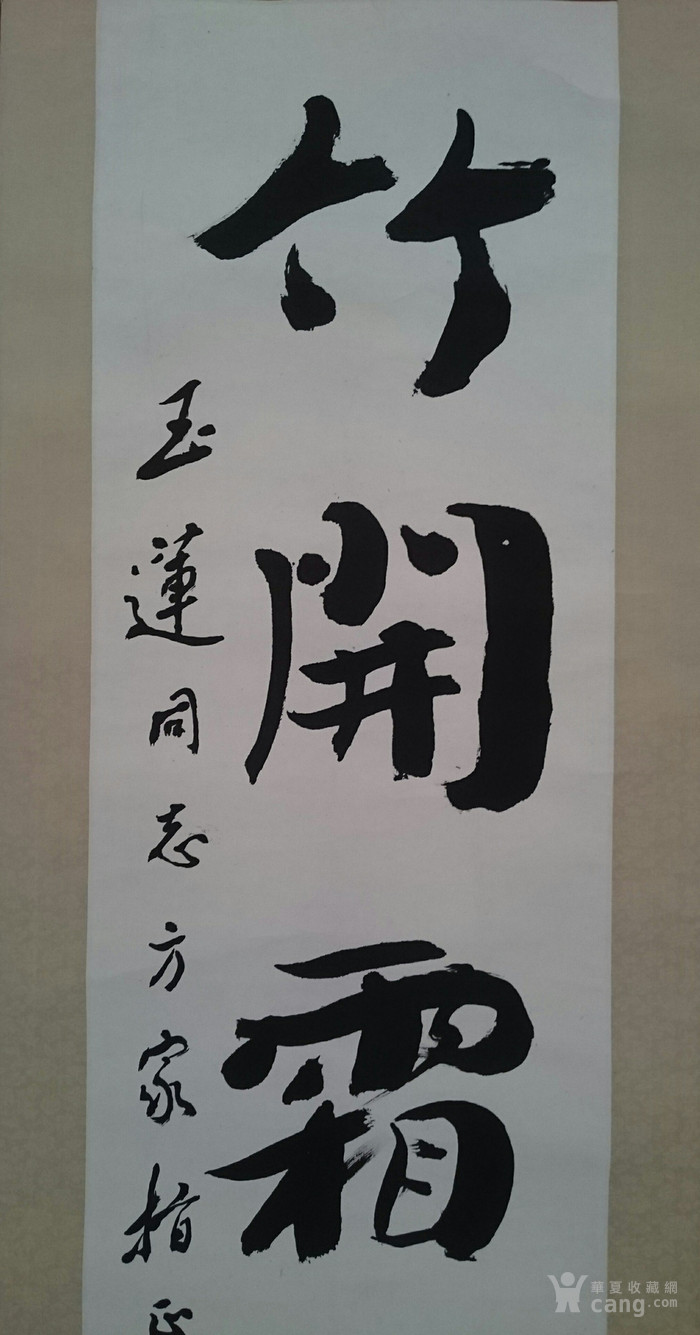 竹開霜
玉蓮同志方家指正
華夏收藏網
cang.com